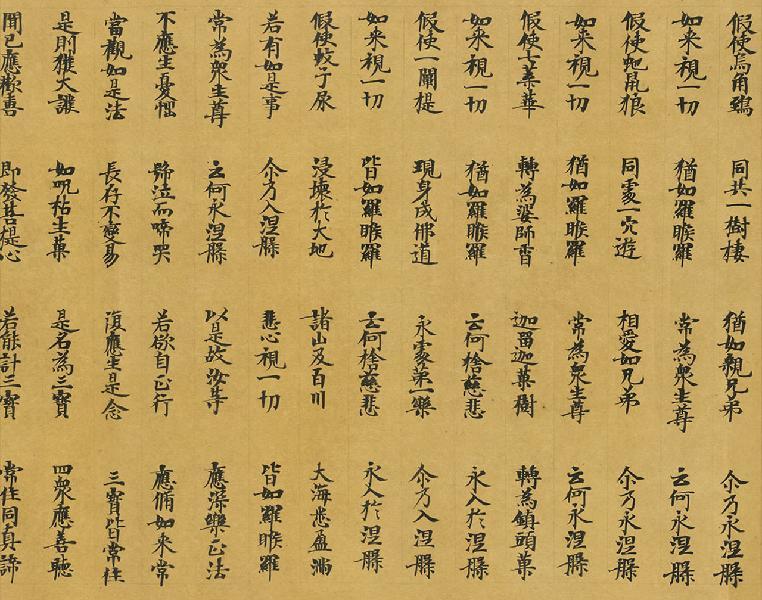 假使烏角鵄 同共一樹棲 猶如親兄弟 尒乃永涅槃
如来視一切 猶如羅睺羅 常為衆生尊 云何永涅槃
假使虵鼠狼 同處一穴遊 相愛如兄弟 尒乃永涅槃
如来視一切 猶如羅睺羅 常為衆生尊 云何永涅槃
假使七葉華 轉為婆師香 迦留迦菓樹 轉為鎮頭菓
如来視一切 猶如羅睺羅 云何捨慈悲 永入於涅槃
假使一闡提 現身成佛道 永處第一樂 尒乃入涅槃
如来視一切 皆如羅睺羅 云何捨慈悲 永入於涅槃
假使蚊子尿 浸壞於大地 諸山及百川 大海悉盈滿
若有如是事 尒乃入涅槃 悲心視一切 皆如羅睺羅
常為衆生尊 云何永涅槃 以是故汝等 應深樂正法
不應生憂惱 號泣而啼哭 若欲自正行 應脩如来常
當觀如是法 長存不變易 復應生是念 三寶皆常住
是則獲大護 如呪枯生菓 是名為三寶 四衆應善聽
聞已應歡喜 即發菩提心 若能計三寶 常住同真諦